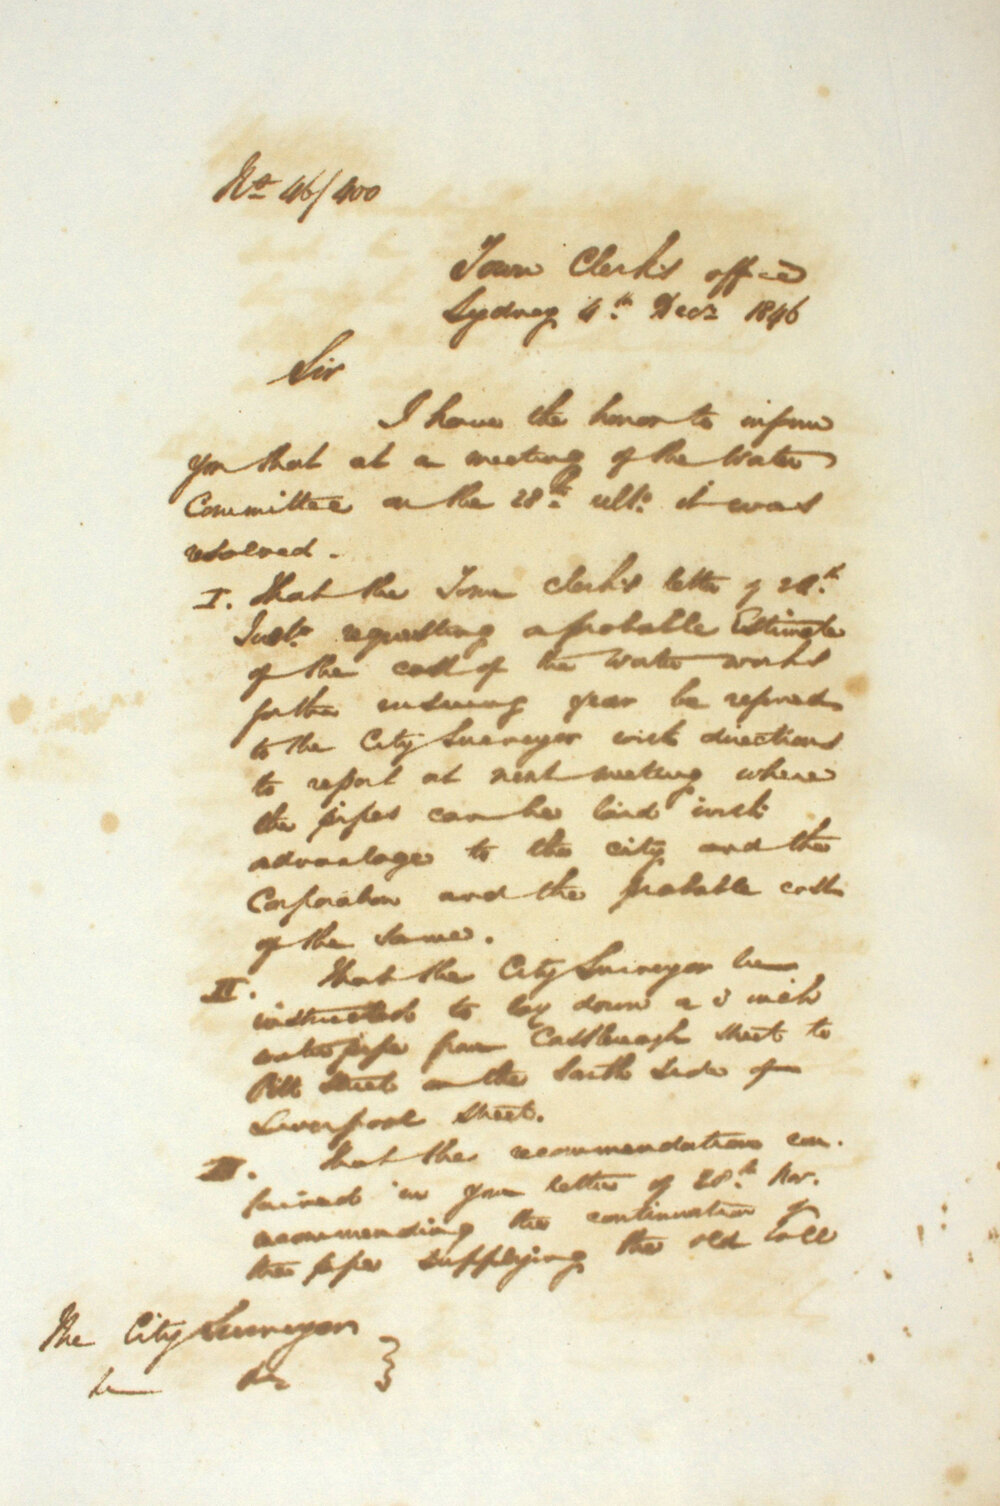 No 46/400
Town Clerk's office
Sydney 4th Decr 1846
Sir
I have the honor to inform
you that at a meeting of the Water
Committee on the 28th ulto. it was
resolved.
I. That the Town Clerk's letter of
Insto requesting a probable Estimate
of the cost of the Water works
for the ensuing year be referred
to the City Surveyor with directions
to report at next meeting where
the pipes can be laid with
advantage to the city and the
Corporation and the probable cost
of the same.
II. That the City Surveyor be
instructed to lay down a 3 inch
water pipe from Castlereagh street to
Pitt Street on the South Side of
Liverpool Street.
III. That the recommendation con.
tained in your letter of 28th Nov.
recommending the continuation of
the pipe supplying the old Toll
The City Surveyor
&c &c